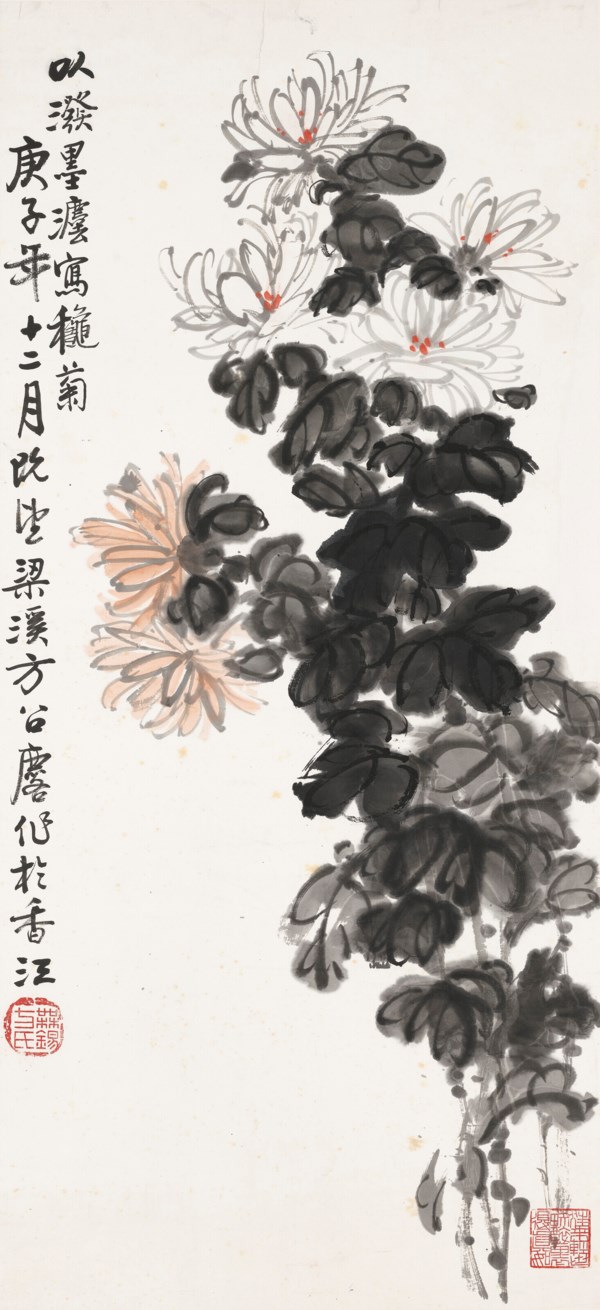 以潑墨灋寫穐菊
庚子年十二月既望梁溪方召麐作於香江
無錫方氏